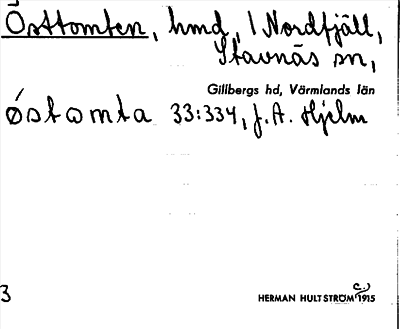 Östtomten, hmd, / Nordfjäll,
Stavnäs sn,
Gillbergs hd, Värmlands län
ǿstomta 33:334, J. A. Hjelm
3
HERMAN HULTSTRÖM c.) 1915